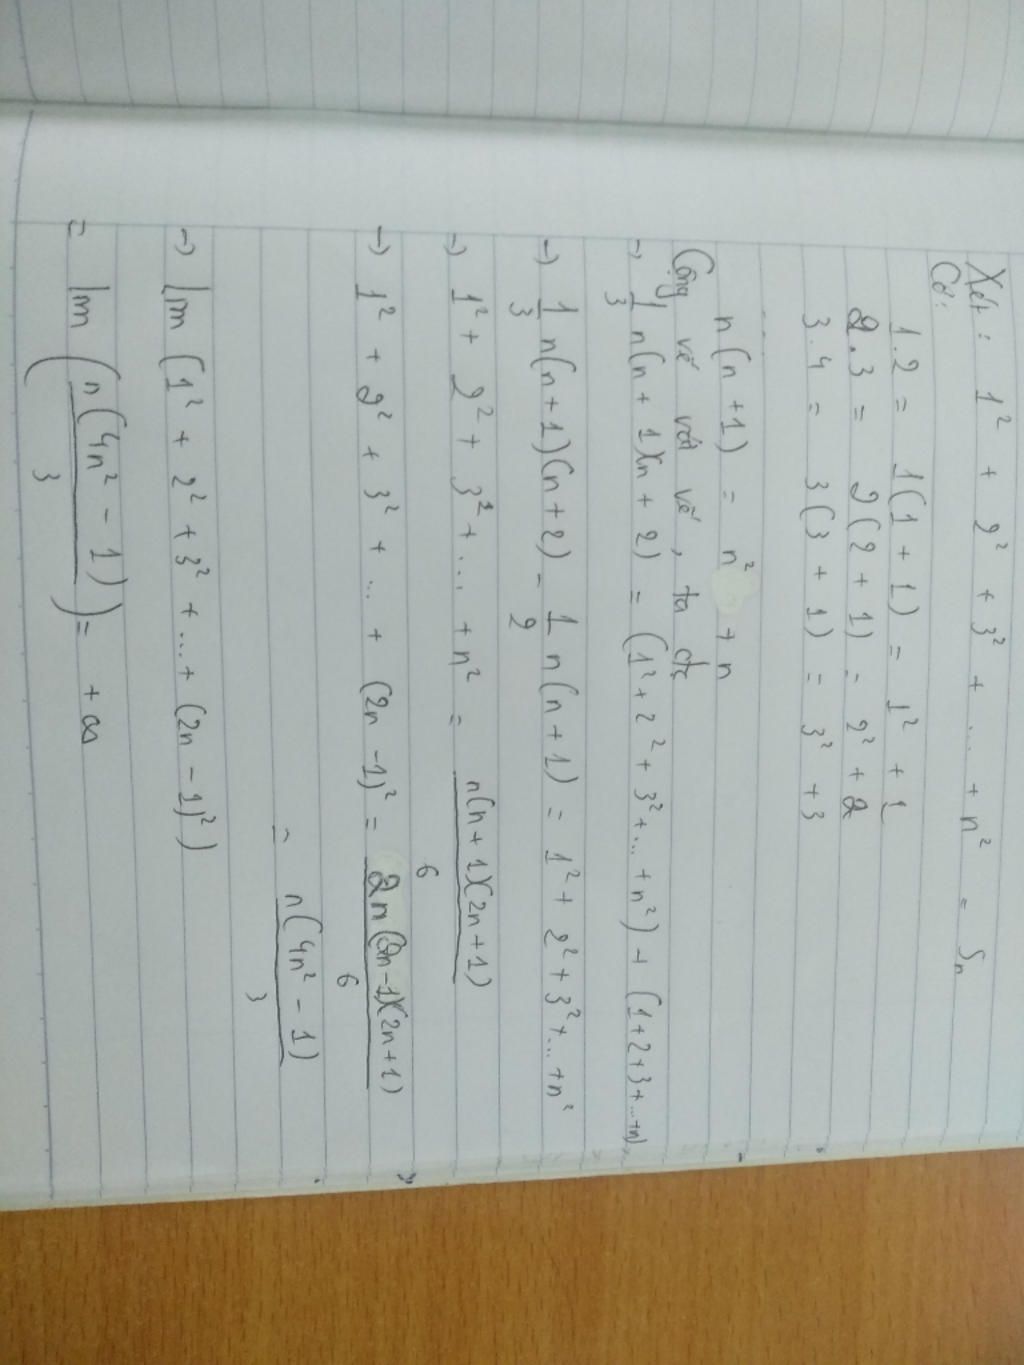 Xét: 1² + 2² + 3² + ... + n² = Sn
Có:
1.2 = 1(1 + 1) = 1² + 1
2.3 = 2(2 + 1) = 2² + 2
3.4 = 3(3 + 1) = 3² + 3
n(n+1) = n² + n
Cộng vế với vế, ta đc
→ 1/3 n(n + 1)(n + 2) = (1² + 2² + 3² + ... + n²) + (1+2+3+...+n)
→ 1/3 n(n+1)(n+2) - 1/2 n(n+1) = 1² + 2² + 3² + ... + n²
→ 1² + 2² + 3² + ... + n² = n(n+1)(2n+1)/6
→ 1² + 2² + 3² + ... + (2n-1)² = 2n(2n-1)(2n+1)/6
= n(4n² - 1)/3
→ lim (1² + 2² + 3² + ... + (2n - 1)²)
= lim (n(4n² - 1)/3) = +∞